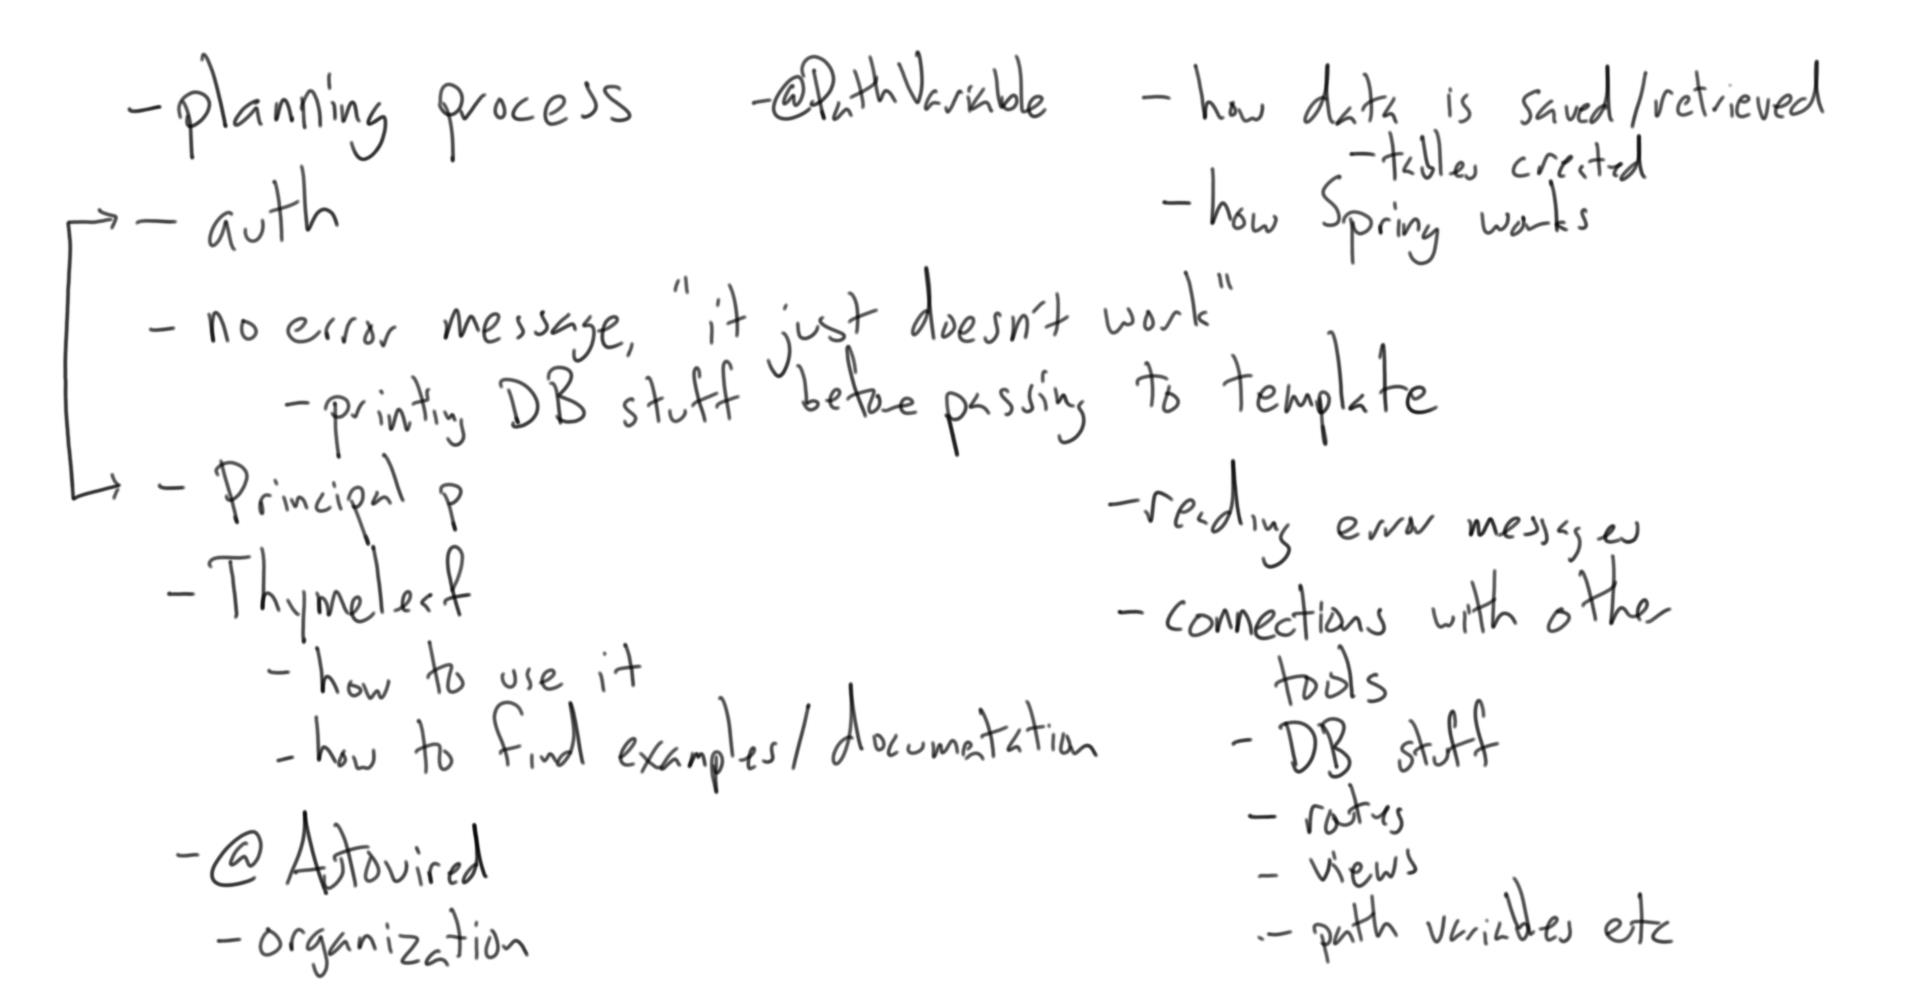 - planning process
- auth
- no error message, "it just doesn't work"
- printing DB stuff before passing to template
- Principal p
- Thymeleaf
- how to use it
- how to find examples/documentation
- @Autowired
- organization
- @PathVariable
- how data is saved/retrieved
- tables created
- how Spring works
- reading error messages
- connections with other
tools
- DB stuff
- routes
- views
- path variables etc